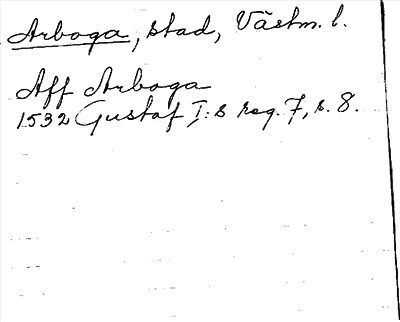 Arboga, stad, Västm. l.
Aff Arboga
1532 Gustaf I:s reg. 7, s. 8.